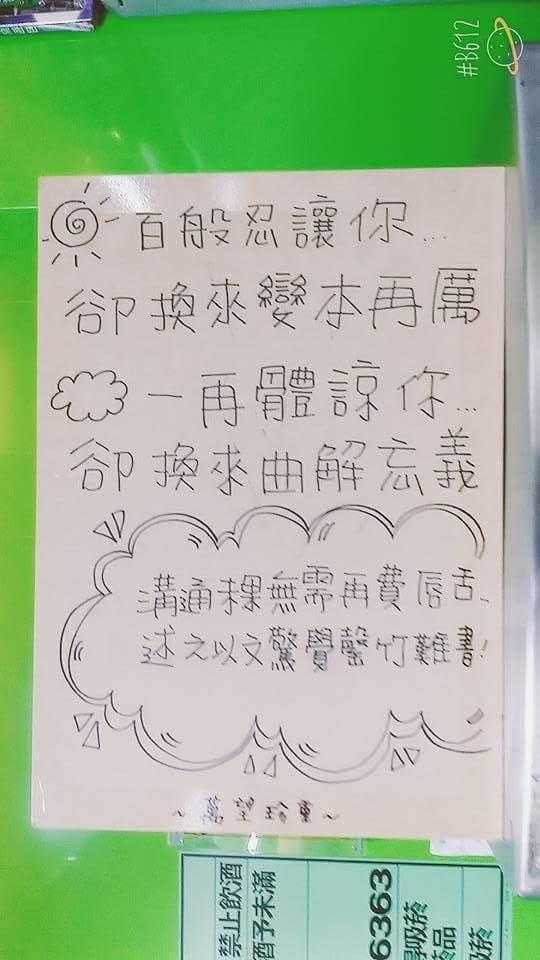 #B612
百般忍讓你...
卻換來變本再厲
一再體諒你...
卻換來曲解忘義
溝通粿無需再費唇舌.
述之以文驚覺罄竹難書!
~萬望珍重~
禁止飲酒
酒予未滿
6363
吸菸
菸品
吸菸